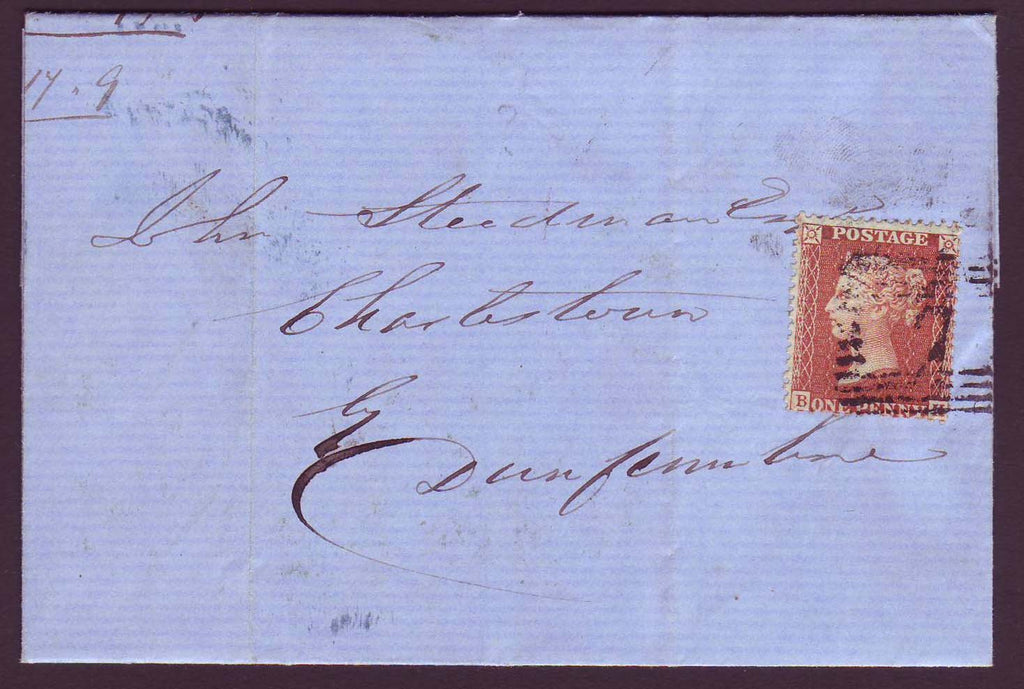 17 . 9
Jhn Steedman Esqr
Charlestown
By Dunfermline
POSTAGE
B ONE PENNY